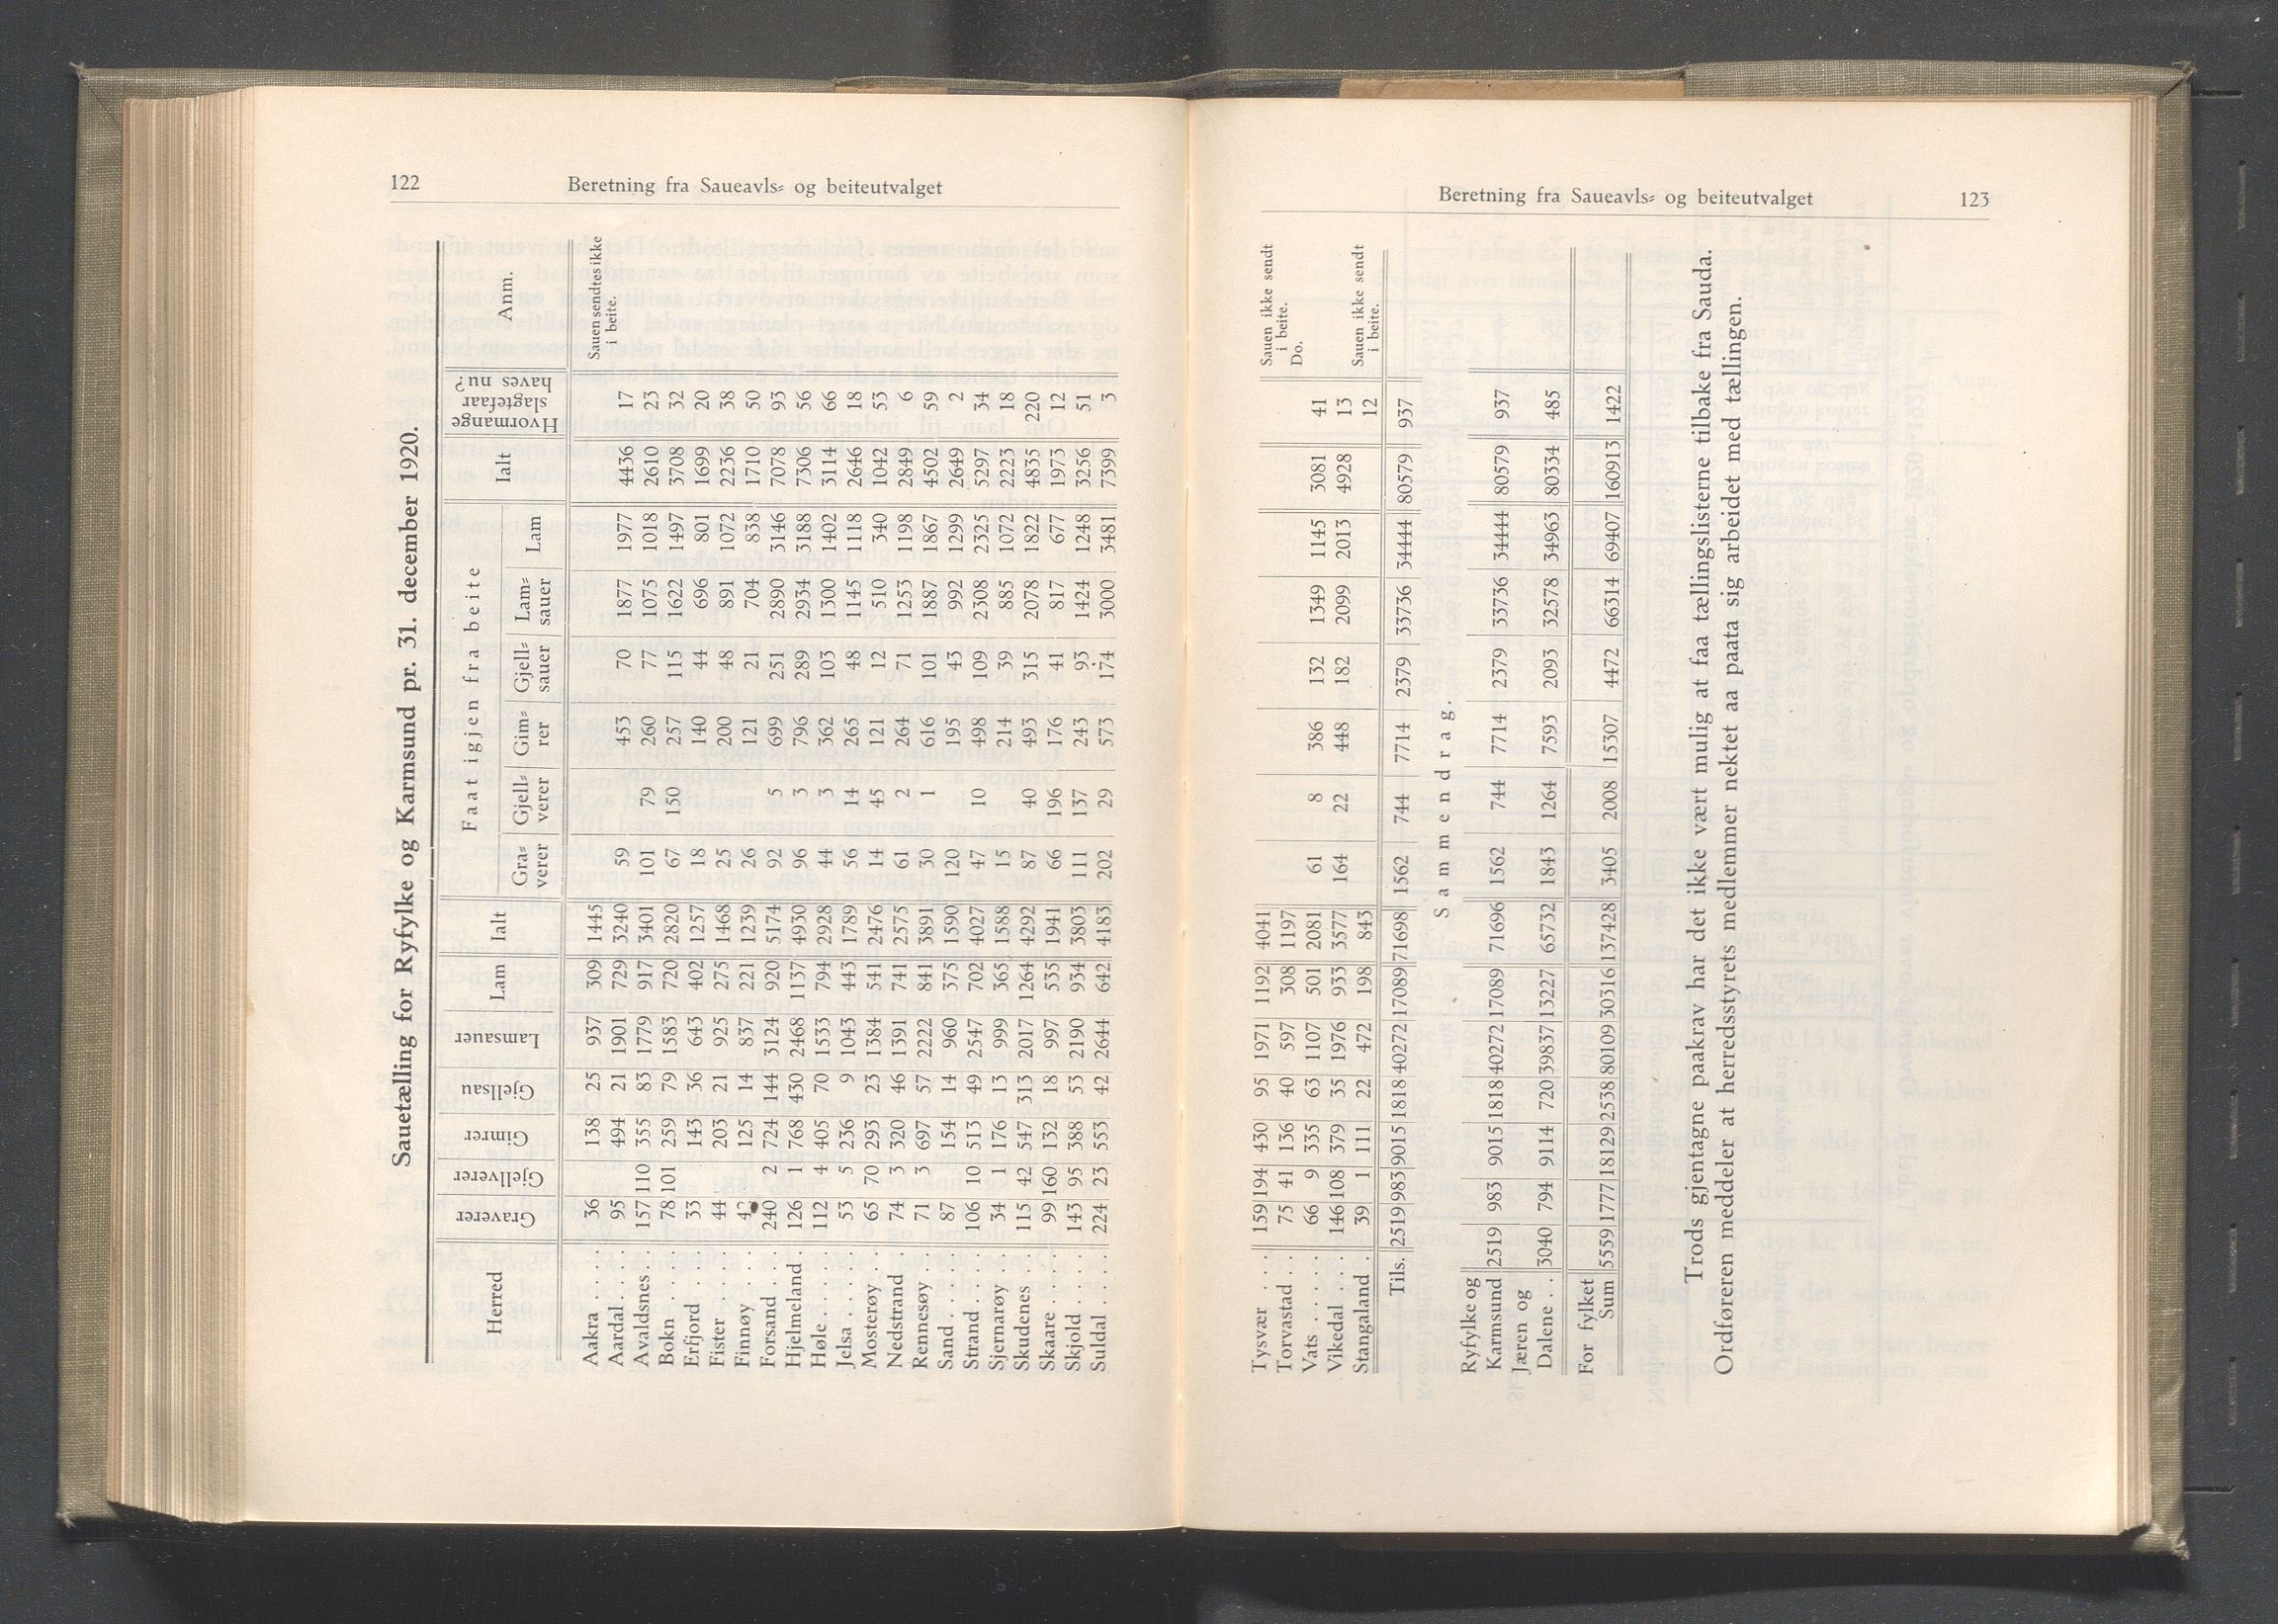 122
Beretning fra Saueavls- og beiteutvalget
Sauetælling for Ryfylke og Karmsund pr. 31. december 1920.
Herred Graverer Gjellverer Gimrer Gjellsau Lamsauer Lam Ialt Faat igjen fra beite Ialt Hvormange slagtefaar haves nu? Anm.
Gra-verer Gjell-verer Gim-rer Gjell-sauer Lam-sauer Lam
Aakra . . . . 36 138 25 937 309 1445 Sauen sendtes ikke i beite.
Aardal . . . . 95 494 21 1901 729 3240 59 453 70 1877 1977 4436 17
Avaldsnes . . 157 110 355 83 1779 917 3401 101 79 260 77 1075 1018 2610 23
Bokn . . . . 78 101 259 79 1583 720 2820 67 150 257 115 1622 1497 3708 32
Erfjord . . . 33 143 36 643 402 1257 18 140 44 696 801 1699 20
Fister . . . . 44 203 21 925 275 1468 25 200 48 891 1072 2236 38
Finnøy . . . 125 14 837 221 1239 26 121 21 704 838 1710 50
Forsand . . . 240 2 724 144 3124 920 5174 92 5 699 251 2890 3146 7078 93
Hjelmeland . 126 1 768 430 2468 1137 4930 96 3 796 289 2934 3188 7306 56
Høle . . . . 112 4 405 70 1533 794 2928 44 3 362 103 1300 1402 3114 66
Jelsa . . . . 53 5 236 9 1043 443 1789 56 14 265 48 1145 1118 2646 18
Mosterøy . . 65 70 293 23 1384 541 2476 14 45 121 12 510 340 1042 53
Nedstrand . . 74 3 320 46 1391 741 2575 61 2 264 71 1253 1198 2849 6
Rennesøy . . 71 3 697 57 2222 841 3891 30 1 616 101 1887 1867 4502 59
Sand . . . . . 87 154 14 960 375 1590 120 195 43 992 1299 2649 2
Strand . . . . 106 10 513 49 2547 702 4027 47 10 498 109 2308 2325 5297 34
Sjernarøy . . 34 1 176 13 999 365 1588 15 214 39 885 1072 2223 18
Skudenes . . 115 42 547 313 2017 1264 4292 87 40 493 315 2078 1822 4835 220
Skaare . . . . 99 160 132 18 997 535 1941 66 196 176 41 817 677 1973 12
Skjold . . . . 143 95 388 53 2190 934 3803 111 137 243 93 1424 1248 3256 51
Suldal . . . . 224 23 553 42 2644 642 4183 202 29 573 174 3000 3481 7399 3
Beretning fra Saueavls- og beiteutvalget
123
Tysvær . . . . 159 194 430 95 1971 1192 4041 Sauen ikke sendt i beite.
Torvastad . . 75 41 136 40 597 308 1197 Do.
Vats . . . . . 66 9 335 63 1107 501 2081 61 8 386 132 1349 1145 3081 41
Vikedal . . . 146 108 379 35 1976 933 3577 164 22 448 182 2099 2013 4928 13
Stangaland . 39 1 111 22 472 198 843 12 Sauen ikke sendt i beite.
Tils. 2519 983 9015 1818 40272 17089 71698 1562 744 7714 2379 33736 34444 80579 937
Sammendrag.
Ryfylke og
Karmsund 2519 983 9015 1818 40272 17089 71696 1562 744 7714 2379 33736 34444 80579 937
Jæren og
Dalene . . 3040 794 9114 720 39837 13227 65732 1843 1264 7593 2093 32578 34963 80334 485
For fylket
Sum 5559 1777 18129 2538 80109 30316 137428 3405 2008 15307 4472 66314 69407 160913 1422
Trods gjentagne paakrav har det ikke vært mulig at faa tællingslisterne tilbake fra Sauda.
Ordføreren meddeler at herredsstyrets medlemmer nektet aa paata sig arbeidet med tællingen.